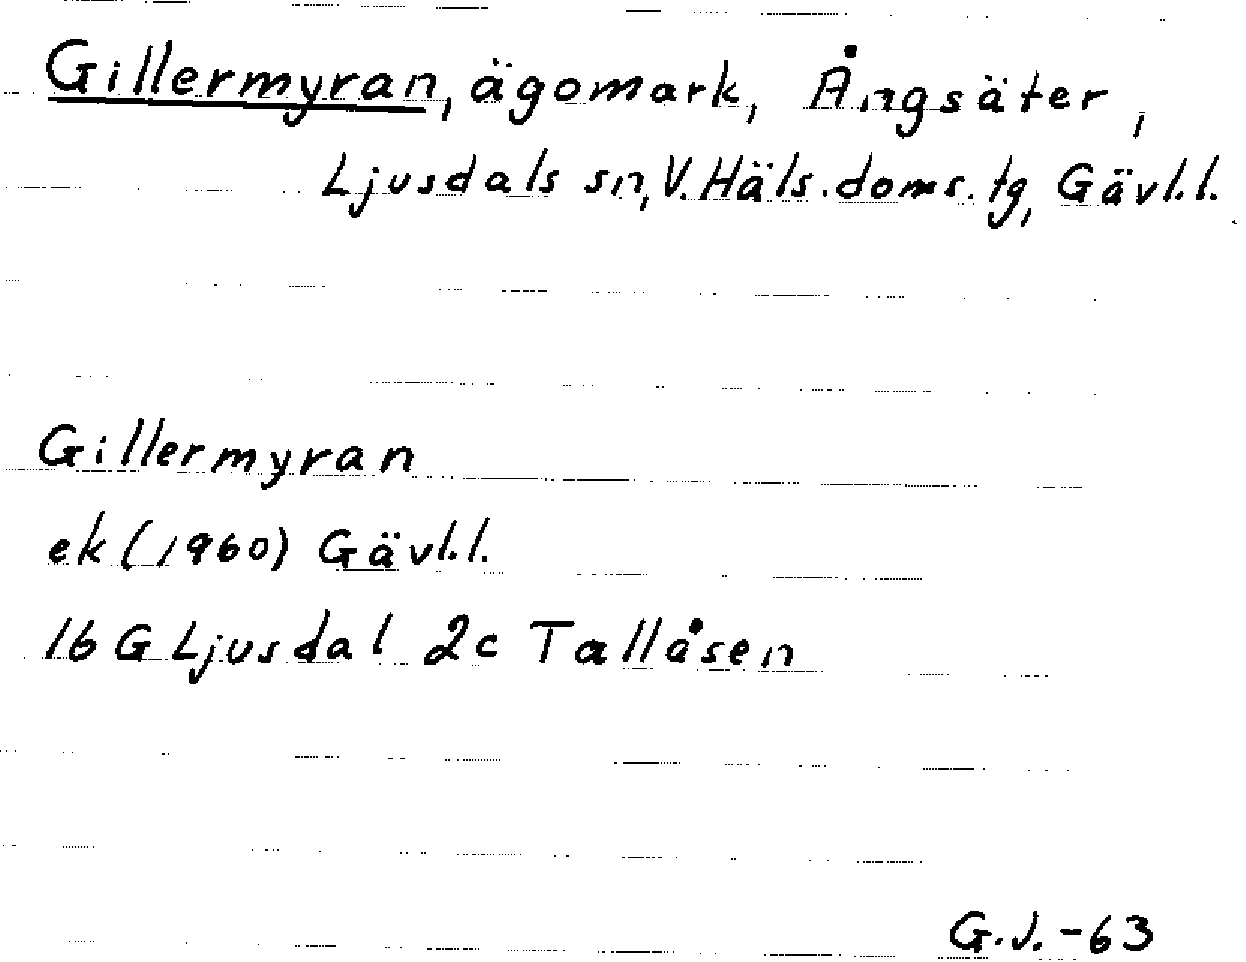 Gillermyran, ägomark, Ångsäter,
Ljusdals sn, V. Häls. doms. tg, Gävl.l.
Gillermyran
ek (1960) Gävl.l.
16 G Ljusdal 2c Tallåsen
G.J. -63